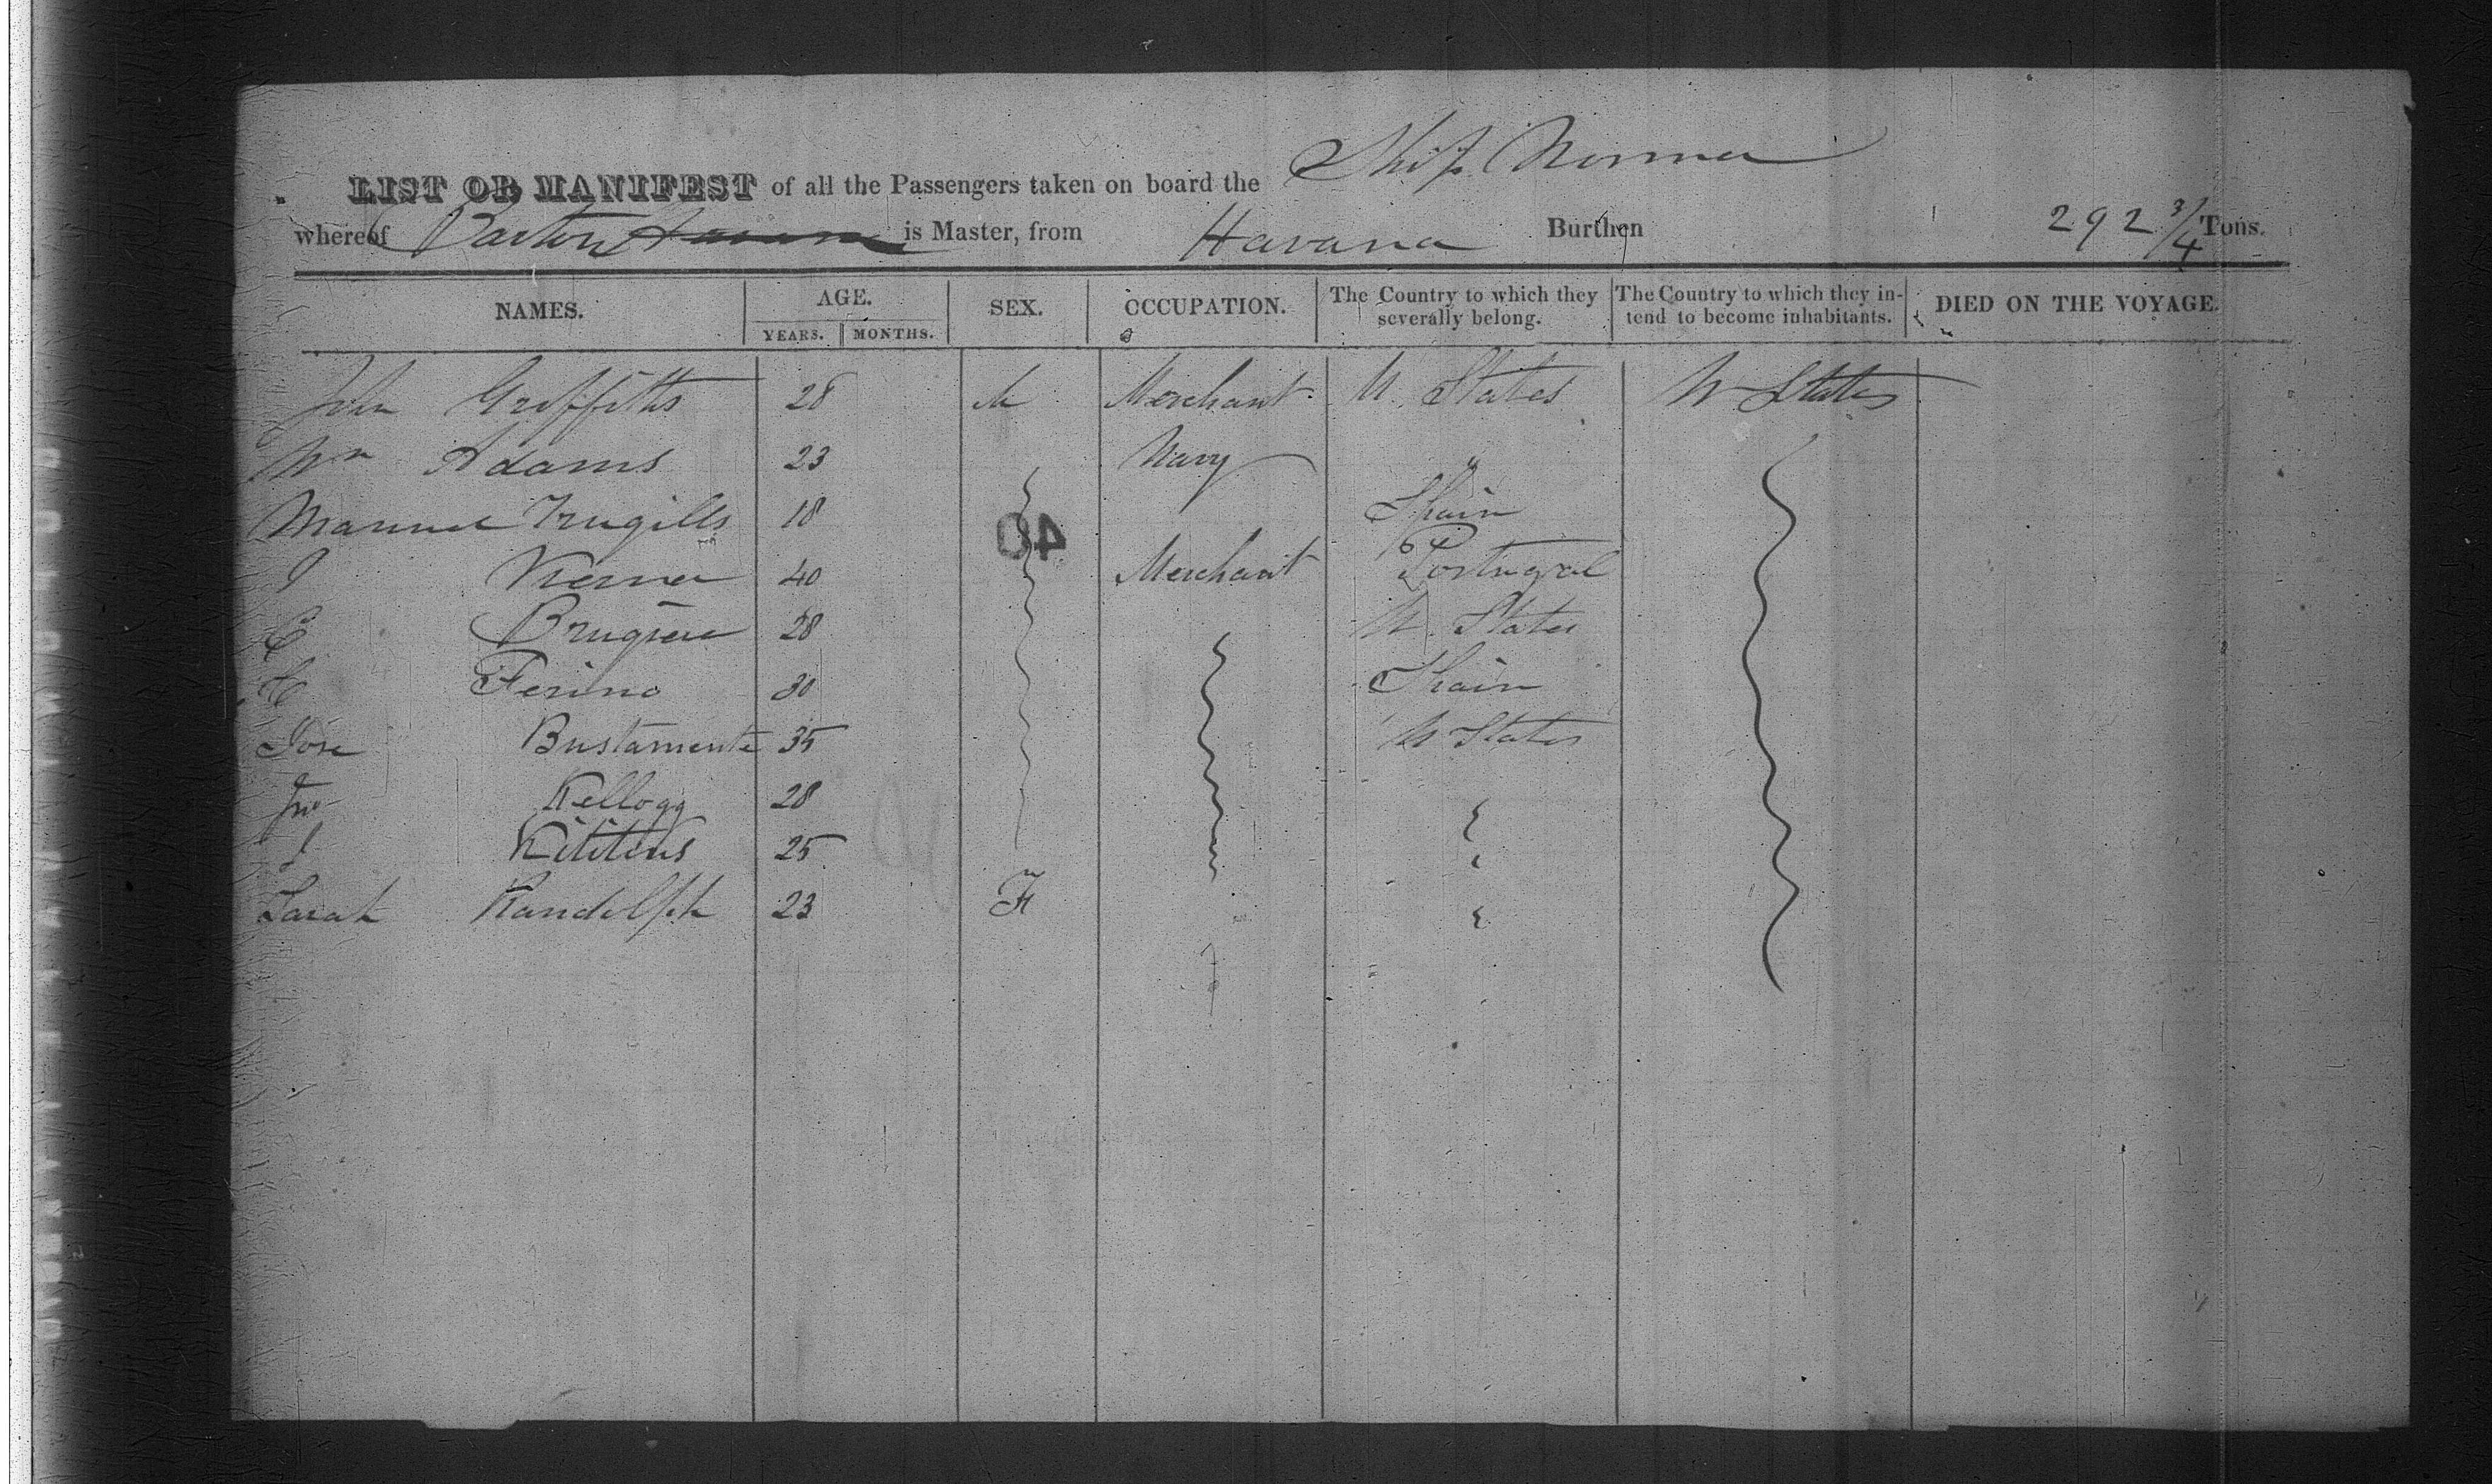 Ship Norma
LIST OR MANIFEST of all the Passengers taken on board the
whereof Barton is Master, from Havana Burthen 292 3/4 Tons.
NAMES. AGE. SEX. OCCUPATION. The Country to which they severally belong. The Country to which they intend to become inhabitants. DIED ON THE VOYAGE.
YEARS. MONTHS.
John Griffiths 28 M Merchant U. States U States
Wm Adams 23 Navy "
Manuel Trugills 18 Spain
40
J 40 Merchant Portugal
C Brugiere 28 U. States
Ferino 30 Spain
Jose Bustamente 35 U States
Jno Kellogg 28
J 25
Sarah Randolph 23 F